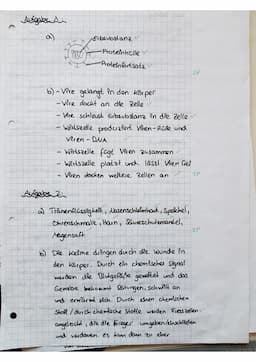 Aufgabe 1:
a)
Erbsubstanz
Proteinhülle
Proteinfortsatz
b) - Vire gelangt in den Körper
- Vire dockt an die Zelle
- Vire schleust Erbsubstanz in die Zelle
- Wirtszelle produziert Viren-Hülle und
Viren-DNA
- Wirtszelle fügt Viren zusammen
- Wirtszelle platzt und lässt Viren frei
- Viren docken weitere Zellen an
Aufgabe 2:
a) Tränenflüssigkeit, Nasenschleimhaut, Speichel,
Ohrenschmalz, Haut, Säureschutzmantel,
Magensaft
b) Die Keime dringen durch die Wunde in
den Körper. Durch ein chemisches Signal
werden die Blutgefäße geweitet und das
Gewebe bekommt Rötungen, schwillt an
und erwärmt sich. Durch einen chemischen
Stoff / durch chemische Stoffe werden Fresszellen
angelockt, die die Erreger umgeben
und verdauen. Es kann dann zu einer